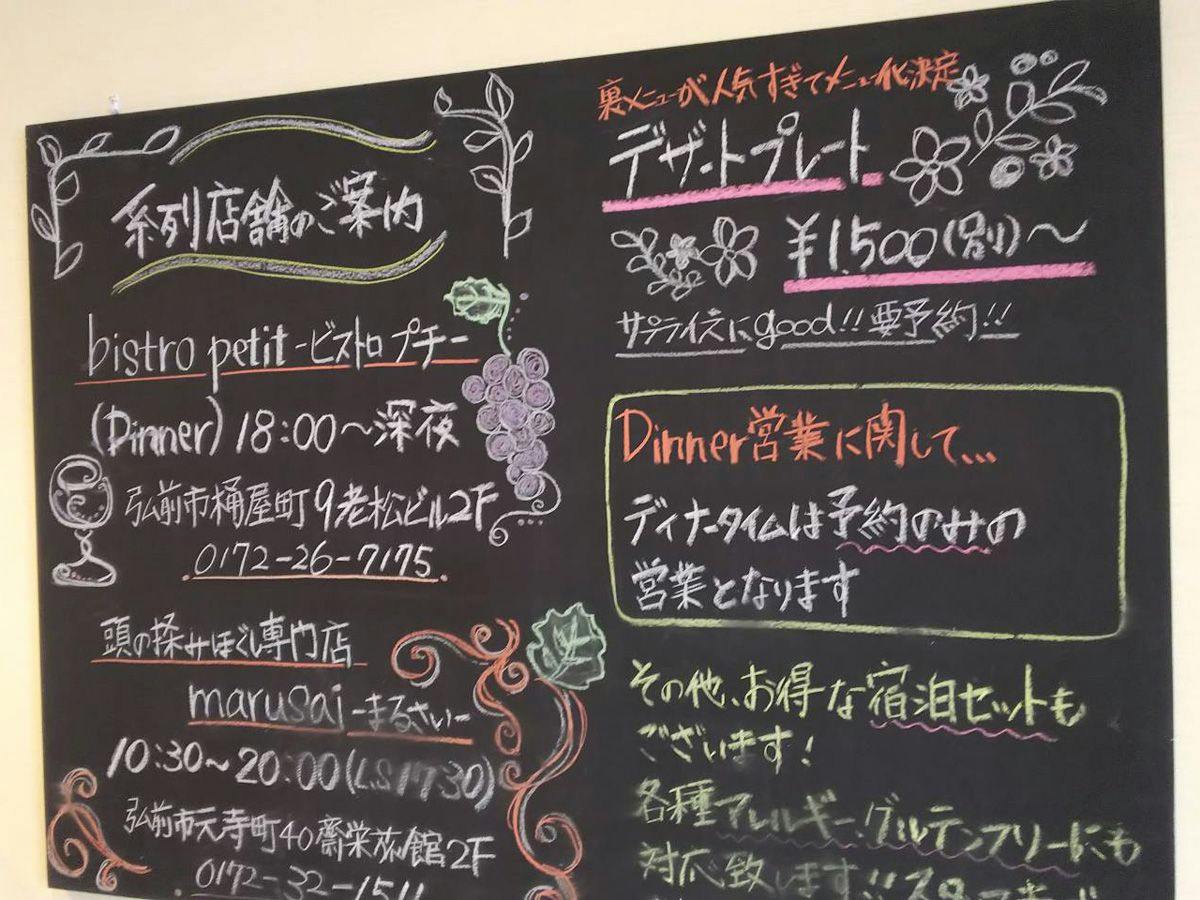 系列店舗のご案内
bistro petit-ビストロ プチ-
(Dinner) 18:00～深夜
弘前市桶屋町9老松ビル2F
0172-26-7175
頭の揉みほぐし専門店
marusai-まるさい-
10:30～20:00(L.S17:30)
弘前市元寺町40齋栄旅館2F
0172-32-1511
裏メニューが人気すぎてメニュー化決定
デザートプレート
¥1,500(別)～
サプライズにgood!!要予約!!
Dinner営業に関して、、、
ディナータイムは予約のみの
営業となります
その他、お得な宿泊セットも
ございます!
各種アレルギー、グルテンフリーにも
対応致します!!